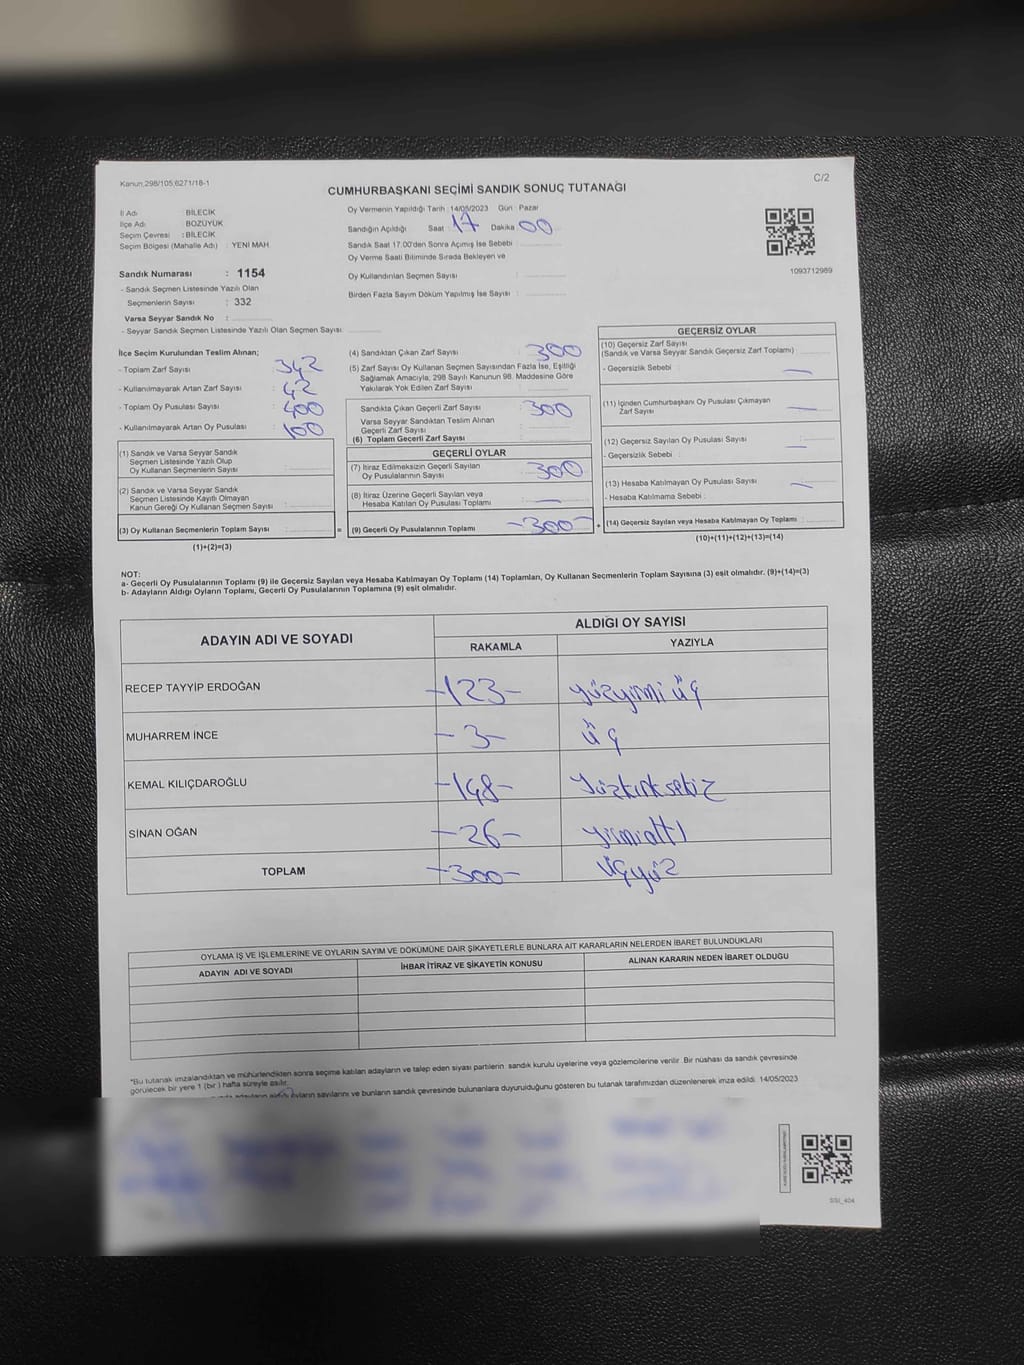 Kanun:298/105;6271/18-1
C/2
CUMHURBAŞKANI SEÇİMİ SANDIK SONUÇ TUTANAĞI
İl Adı : BİLECİK
İlçe Adı : BOZÜYÜK
Seçim Çevresi : BİLECİK
Seçim Bölgesi (Mahalle Adı) : YENİ MAH.
Oy Vermenin Yapıldığı Tarih : 14/05/2023 Gün : Pazar
Sandığın Açıldığı Saat 17 Dakika 00
Sandık Saat 17.00'den Sonra Açımış İse Sebebi :
Oy Verme Saati Bitiminde Sırada Bekleyen ve
Oy Kullandırılan Seçmen Sayısı :
Birden Fazla Sayım Döküm Yapılmış İse Sayısı :
1093712989
Sandık Numarası : 1154
- Sandık Seçmen Listesinde Yazılı Olan
Seçmenlerin Sayısı : 332
Varsa Seyyar Sandık No :
- Seyyar Sandık Seçmen Listesinde Yazılı Olan Seçmen Sayısı:
İlçe Seçim Kurulundan Teslim Alınan;
- Toplam Zarf Sayısı : 342
- Kullanılmayarak Artan Zarf Sayısı : 42
- Toplam Oy Pusulası Sayısı : 400
- Kullanılmayarak Artan Oy Pusulası : 100
(1) Sandık ve Varsa Seyyar Sandık
Seçmen Listesinde Yazılı Olup
Oy Kullanan Seçmenlerin Sayısı :
(2) Sandık ve Varsa Seyyar Sandık
Seçmen Listesinde Kayıtlı Olmayan
Kanun Gereği Oy Kullanan Seçmen Sayısı :
(3) Oy Kullanan Seçmenlerin Toplam Sayısı : =
(1)+(2)=(3)
(4) Sandıktan Çıkan Zarf Sayısı : 300
(5) Zarf Sayısı Oy Kullanan Seçmen Sayısından Fazla İse, Eşitliği
Sağlamak Amacıyla, 298 Sayılı Kanunun 98. Maddesine Göre
Yakılarak Yok Edilen Zarf Sayısı :
Sandıkta Çıkan Geçerli Zarf Sayısı : 300
Varsa Seyyar Sandıktan Teslim Alınan
Geçerli Zarf Sayısı :
(6) Toplam Geçerli Zarf Sayısı :
GEÇERLİ OYLAR
(7) İtiraz Edilmeksizin Geçerli Sayılan
Oy Pusulalarının Sayısı : 300
(8) İtiraz Üzerine Geçerli Sayılan veya
Hesaba Katılan Oy Pusulası Toplamı : —
(9) Geçerli Oy Pusulalarının Toplamı : -300- +
GEÇERSİZ OYLAR
(10) Geçersiz Zarf Sayısı
(Sandık ve Varsa Seyyar Sandık Geçersiz Zarf Toplamı) :
- Geçersizlik Sebebi : —
(11) İçinden Cumhurbaşkanı Oy Pusulası Çıkmayan
Zarf Sayısı : —
(12) Geçersiz Sayılan Oy Pusulası Sayısı :
- Geçersizlik Sebebi : —
(13) Hesaba Katılmayan Oy Pusulası Sayısı : —
- Hesaba Katılmama Sebebi :
(14) Geçersiz Sayılan veya Hesaba Katılmayan Oy Toplamı :
(10)+(11)+(12)+(13)=(14)
NOT:
a- Geçerli Oy Pusulalarının Toplamı (9) ile Geçersiz Sayılan veya Hesaba Katılmayan Oy Toplamı (14) Toplamları, Oy Kullanan Seçmenlerin Toplam Sayısına (3) eşit olmalıdır. (9)+(14)=(3)
b- Adayların Aldığı Oyların Toplamı, Geçerli Oy Pusulalarının Toplamına (9) eşit olmalıdır.
ADAYIN ADI VE SOYADI ALDIĞI OY SAYISI
RAKAMLA YAZIYLA
RECEP TAYYİP ERDOĞAN -123- yüzyirmi üç
MUHARREM İNCE -3- üç
KEMAL KILIÇDAROĞLU -148- yüzkırksekiz
SİNAN OĞAN -26- yirmialtı
TOPLAM -300- üçyüz
OYLAMA İŞ VE İŞLEMLERİNE VE OYLARIN SAYIM VE DÖKÜMÜNE DAİR ŞİKAYETLERLE BUNLARA AİT KARARLARIN NELERDEN İBARET BULUNDUKLARI
ADAYIN ADI VE SOYADI İHBAR İTİRAZ VE ŞİKAYETİN KONUSU ALINAN KARARIN NEDEN İBARET OLDUĞU
*Bu tutanak imzalandıktan ve mühürlendikten sonra seçime katılan adayların ve talep eden siyasi partilerin sandık kurulu üyelerine veya gözlemcilerine verilir. Bir nüshası da sandık çevresinde
görülecek bir yere 1 (bir ) hafta süreyle asılır.
adayların aldığı oyların sayılarını ve bunların sandık çevresinde bulunanlara duyurulduğunu gösteren bu tutanak tarafımızdan düzenlenerek imza edildi. 14/05/2023
SSI_404